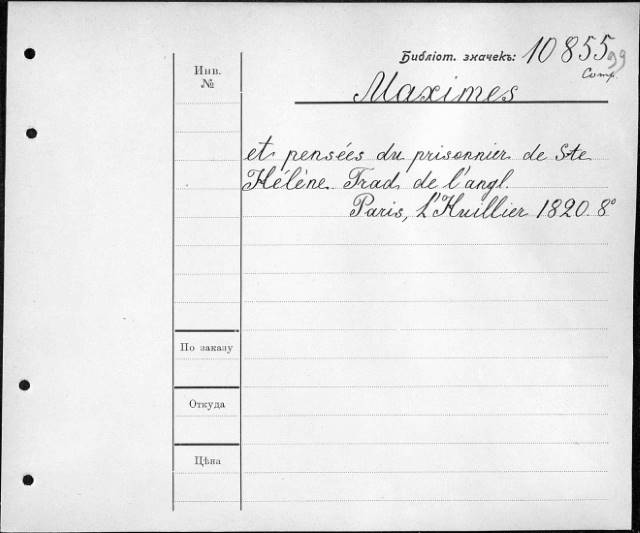 Библіот. значекъ: 10855
99
Comp.
Инв.
№
Maximes
et pensées du prisonnier de Ste
Hélène. Trad. de l'angl.
Paris, L'Huillier 1820. 8°
По заказу
Откуда
Цѣна